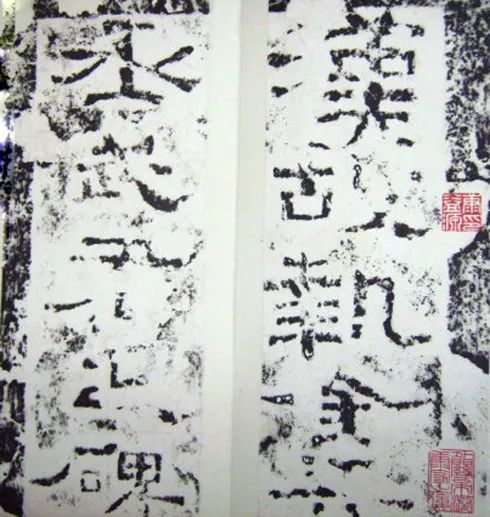 漢故執金
丞武君之碑